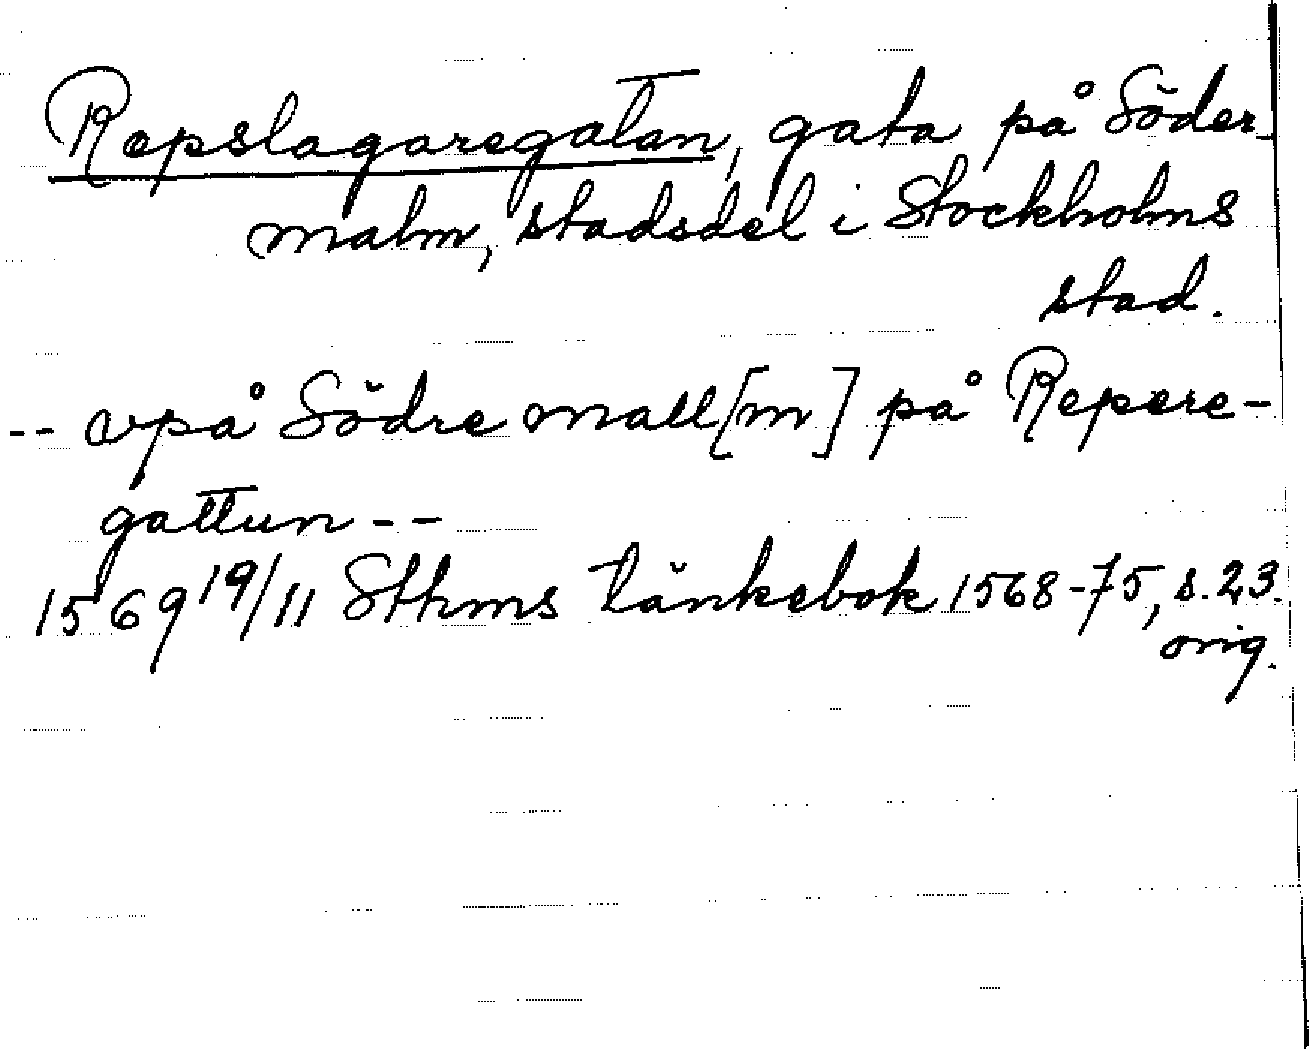 Repslagaregatan, gata på Söder-
malm, stadsdel i Stockholms
stad.
-- vpå Södre mall[m] på Repere-
gattun --
1569 19/11 Sthms tänkebok 1568-75, s. 23.
orig.